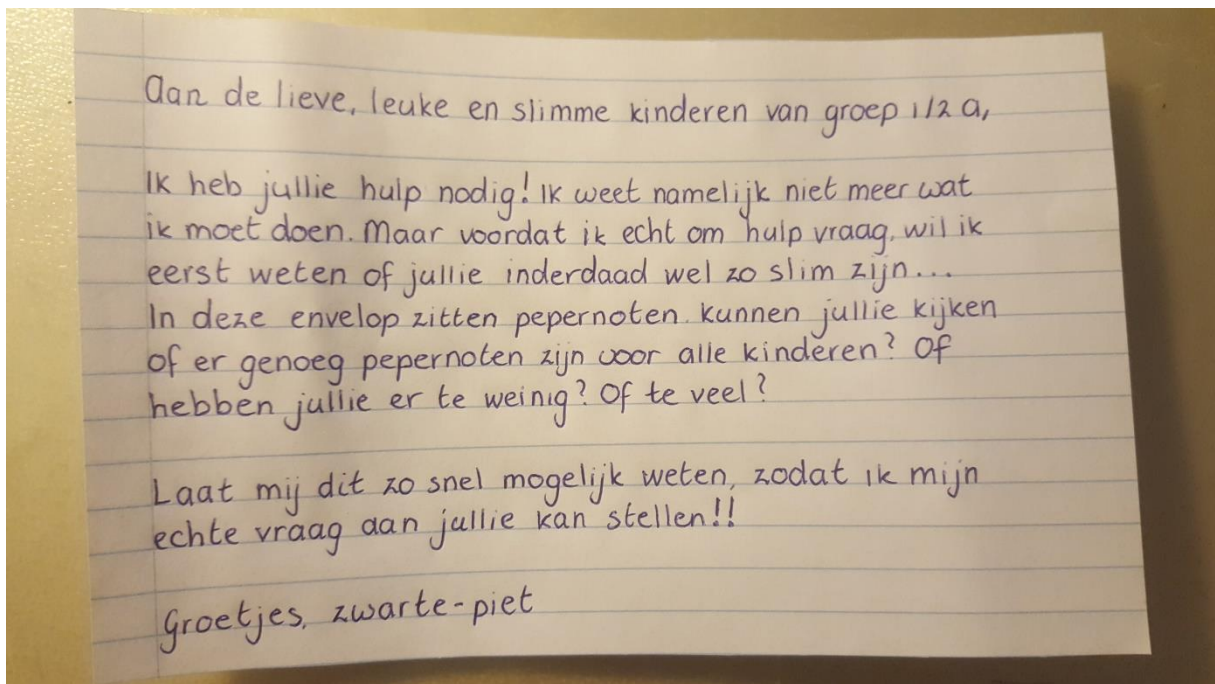 Aan de lieve, leuke en slimme kinderen van groep 1/2 a,
Ik heb jullie hulp nodig! Ik weet namelijk niet meer wat
ik moet doen. Maar voordat ik echt om hulp vraag, wil ik
eerst weten of jullie inderdaad wel zo slim zijn...
In deze envelop zitten pepernoten. kunnen jullie kijken
of er genoeg pepernoten zijn voor alle kinderen? Of
hebben jullie er te weinig? Of te veel?
Laat mij dit zo snel mogelijk weten, zodat ik mijn
echte vraag aan jullie kan stellen!!
Groetjes, zwarte-piet